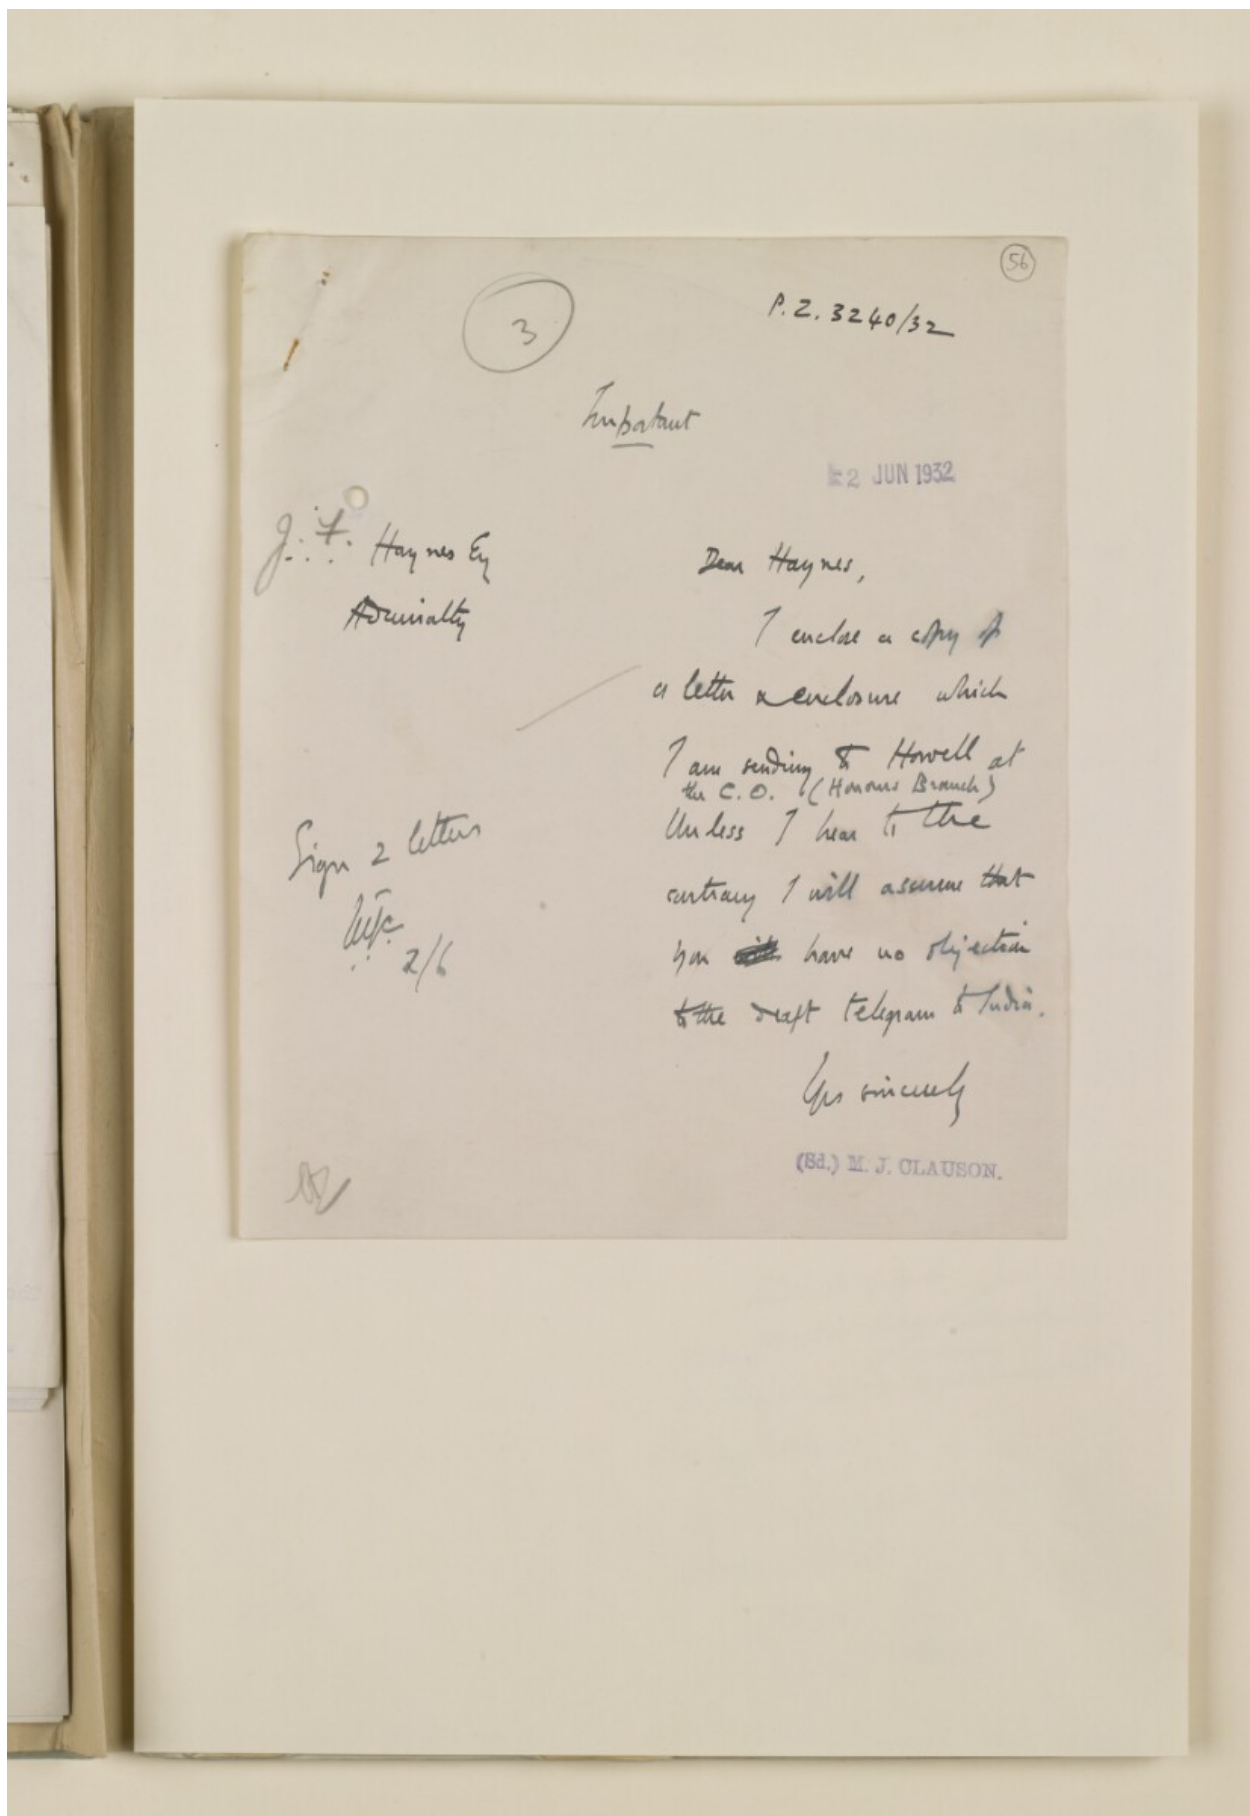 56
3
P.Z. 3240/32
Important
2 JUN 1932
J. F. Haynes Esq
Admiralty
Dear Haynes,
I enclose a copy of
a letter & enclosure which
I am sending to Howell at
the C.O. (Honours Branch)
Unless I hear to the
contrary I will assume that
you have no objection
to the draft telegram to India.
Yrs sincerely
(Sd.) M. J. CLAUSON.
Sign 2 letters
2/6